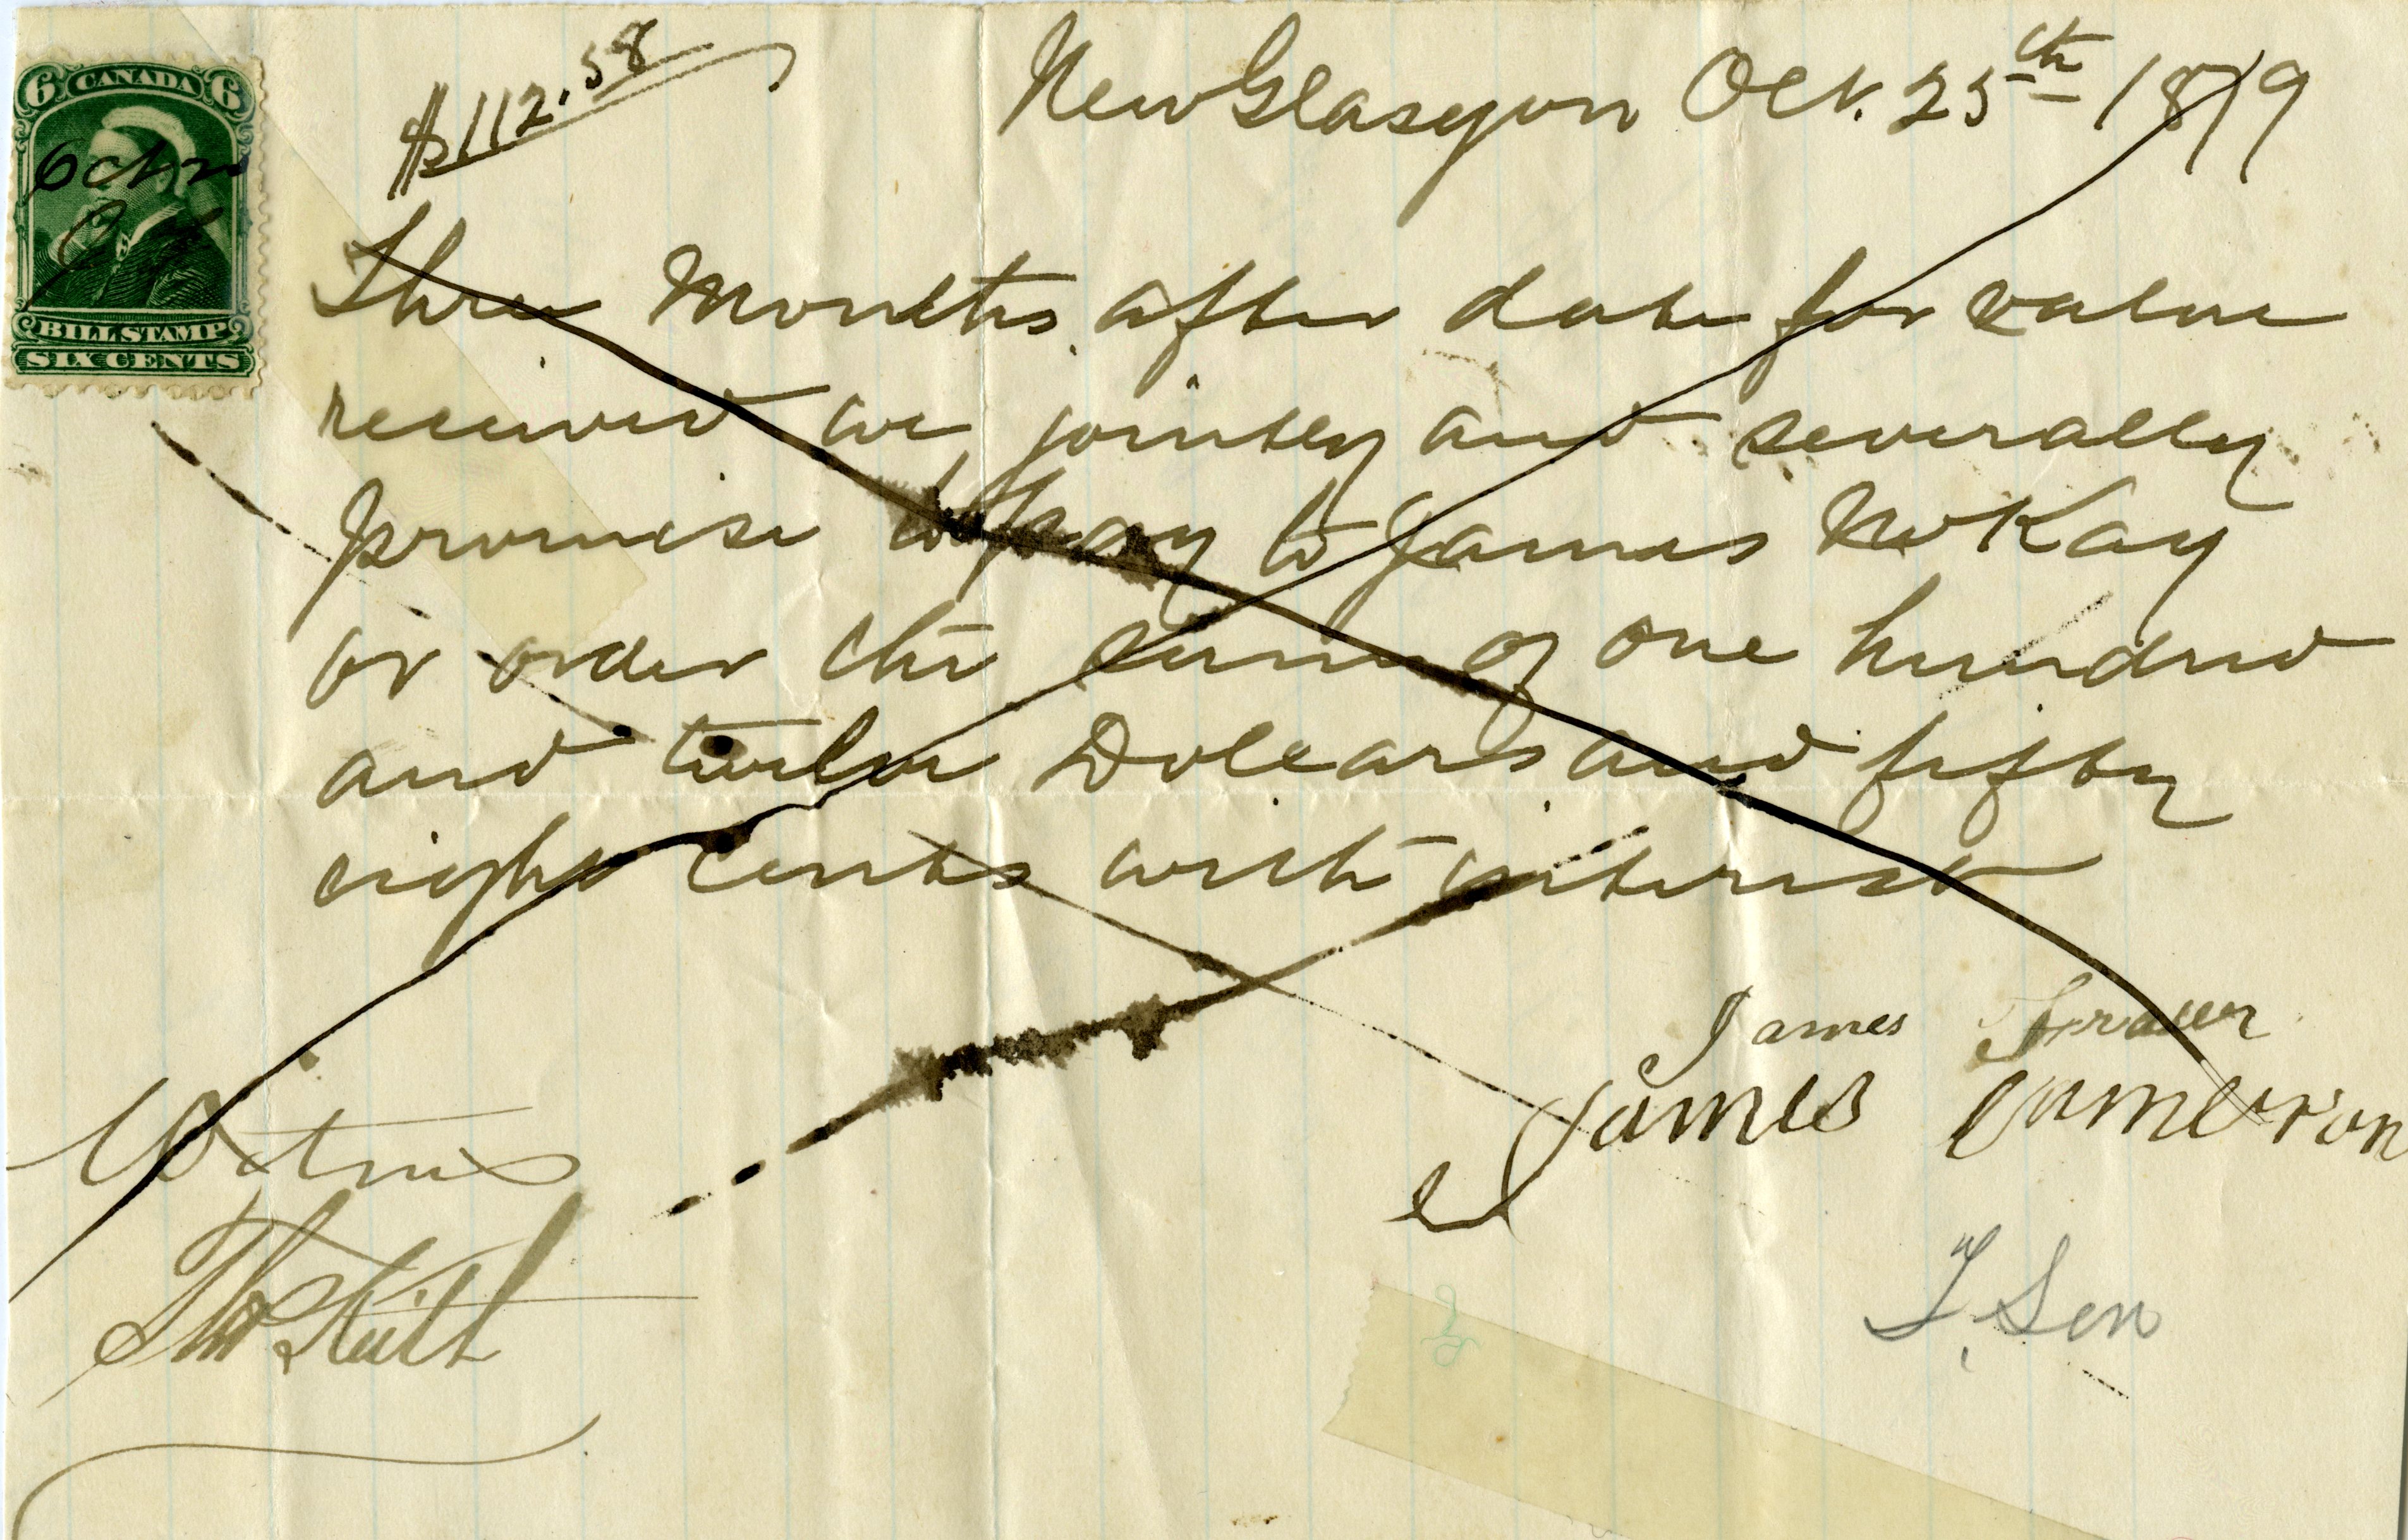 6 CANADA 6
BILL STAMP
SIX CENTS
$112.58
New Glasgow Oct. 25th 1879
Three Months after date for value
received we jointly and severally
promise to pay to James McKay
or order the sum of one hundred
and twelve Dollars and fifty
eight cents with interest
James Fraser
James Cameron
Witness
Thos Keith